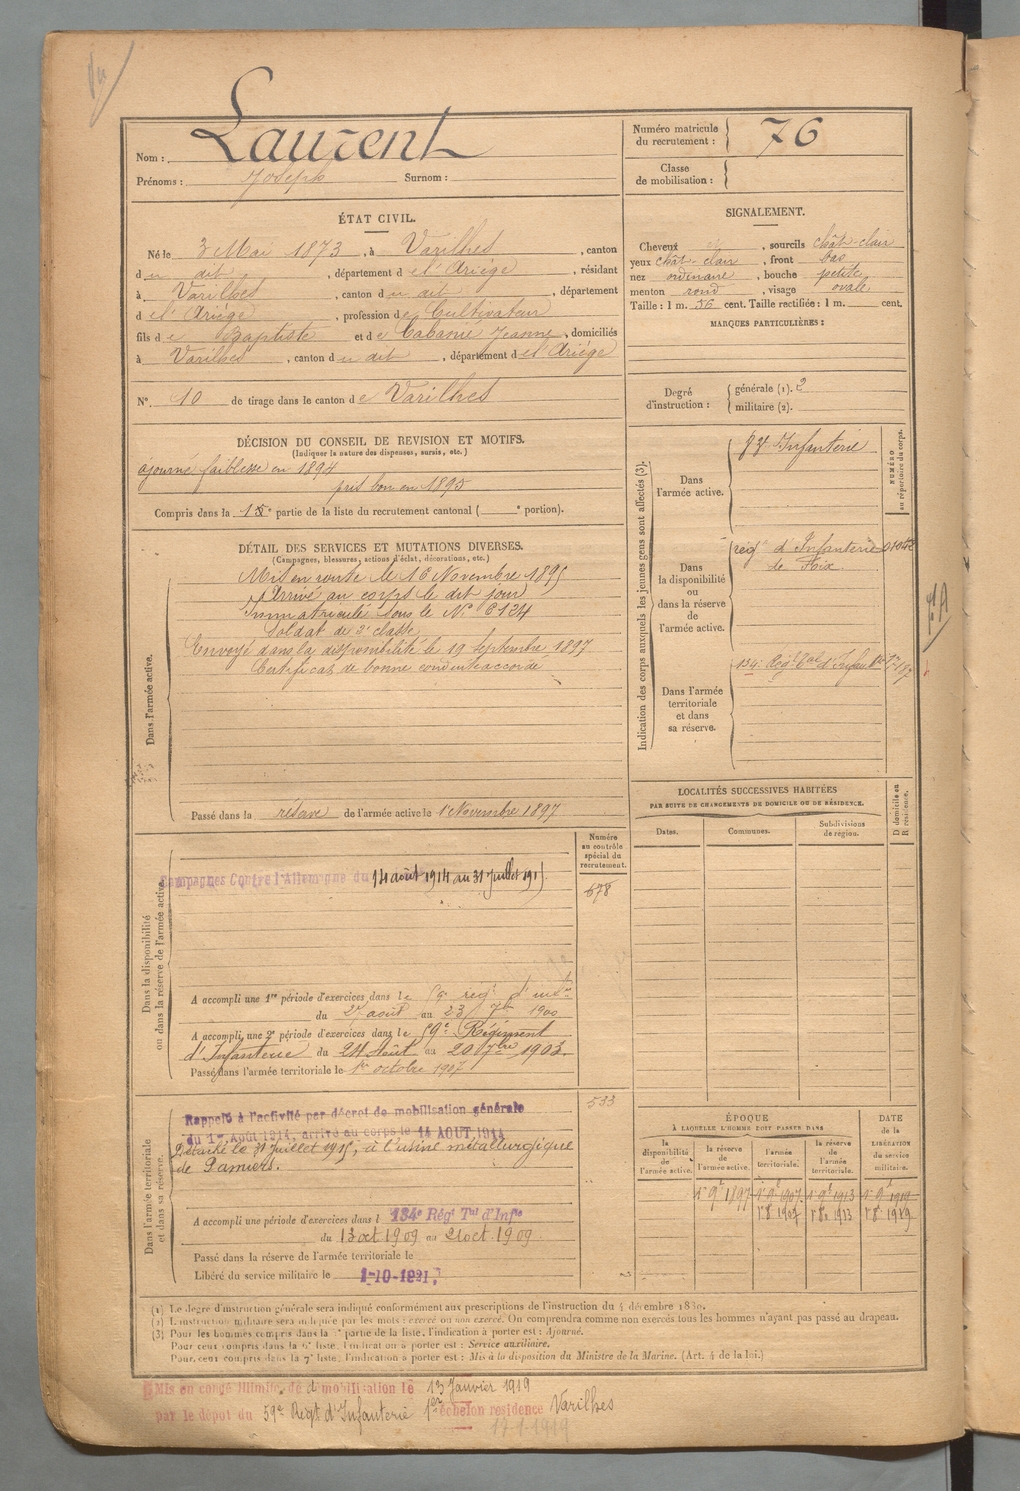 Vu
Nom : Laurent
Prénoms : Joseph Surnom :
Numéro matricule du recrutement : 76
Classe de mobilisation :
ÉTAT CIVIL.
Né le 3 Mai 1873, à Varilhes, canton
du dit, département de l'Ariège, résidant
à Varilhes, canton du dit, département
de l'Ariège, profession de Cultivateur
fils de Baptiste et de Cabanié Jeanne, domiciliés
à Varilhes, canton du dit, département de l'Ariège
N° 10 de tirage dans le canton de Varilhes
SIGNALEMENT.
Cheveux et, sourcils chât-clair
yeux chât-clair, front bas
nez ordinaire, bouche petite
menton rond, visage ovale
Taille : 1 m. 56 cent. Taille rectifiée : 1 m. cent.
MARQUES PARTICULIÈRES :
Degré d'instruction : générale (1). 2
militaire (2).
DÉCISION DU CONSEIL DE REVISION ET MOTIFS.
(Indiquer la nature des dispenses, sursis, etc.)
ajourné faiblesse en 1894
pris bon en 1895
Compris dans la partie de la liste du recrutement cantonal ( e portion).
DÉTAIL DES SERVICES ET MUTATIONS DIVERSES.
(Campagnes, blessures, actions d'éclat, décorations, etc.)
Dans l'armée active.
Mis en route le 16 Novembre 1895
Arrivé au corps le dit jour
Immatriculé sous le N° 6134
Soldat de 2e classe
Envoyé dans la disponibilité le 19 Septembre 1897
Certificat de bonne conduite accordé
Passé dans la réserve de l'armée active le 1er Novembre 1897
Indication des corps auxquels les jeunes gens sont affectés (3).
NUMÉRO au répertoire du corps.
Dans l'armée active.
Infanterie
Dans la disponibilité ou dans la réserve de l'armée active.
rég d'Infanterie
de Foix
Dans l'armée territoriale et dans sa réserve.
134e Régt Tal d'Infan
LOCALITÉS SUCCESSIVES HABITÉES
PAR SUITE DE CHANGEMENTS DE DOMICILE OU DE RÉSIDENCE.
Dates. Communes. Subdivisions de région. D domicile ou R résidence.
Numéro au contrôle spécial du recrutement.
678
Dans la disponibilité ou dans la réserve de l'armée active.
Campagnes Contre l'Allemagne du 14 août 1914 au 31 juillet 1915
A accompli une 1re période d'exercices dans le 59e rég d'inf
du 27 août au 23 7bre 1900
A accompli une 2e période d'exercices dans le 59e Régiment
d'Infanterie du 24 Août au 20 7bre 1903.
Passé dans l'armée territoriale le 1er octobre 1907
533
Dans l'armée territoriale et dans sa réserve.
Rappelé à l'activité par décret de mobilisation générale
du 1er Août 1914, arrivé au corps le 14 AOUT 1914
Détaché le 31 Juillet 1915, à l'usine métallurgique
de Pamiers.
A accompli une période d'exercices dans l 134e Régt Tal d'Infie
du 13 oct 1909 au 21 oct 1909
Passé dans la réserve de l'armée territoriale le
Libéré du service militaire le 1-10-1921.
ÉPOQUE
À LAQUELLE L'HOMME DOIT PASSER DANS
DATE de la LIBÉRATION du service militaire.
la disponibilité de l'armée active. la réserve de l'armée active. l'armée territoriale. la réserve de l'armée territoriale.
1er 9bre 1897 1er 9bre 1907 1er 9bre 1913 1er 9bre 1919
1er 8bre 1907 1er 8bre 1913 1er 8bre 1919
(1) Le degré d'instruction générale sera indiqué conformément aux prescriptions de l'instruction du 4 décembre 1889.
(2) L'instruction militaire sera indiquée par les mots : exercé ou non exercé. On comprendra comme non exercés tous les hommes n'ayant pas passé au drapeau.
(3) Pour les hommes compris dans la partie de la liste, l'indication à porter est : Ajourné.
Pour ceux compris dans la 6e liste, l'indication à porter est : Service auxiliaire.
Pour ceux compris dans la 7e liste, l'indication à porter est : Mis à la disposition du Ministre de la Marine. (Art. 4 de la loi.)
Mis en congé illimité de démobilisation le 13 Janvier 1919
par le dépôt du 59e Régt d'Infanterie 1er échelon résidence Varilhes
17-1-1919